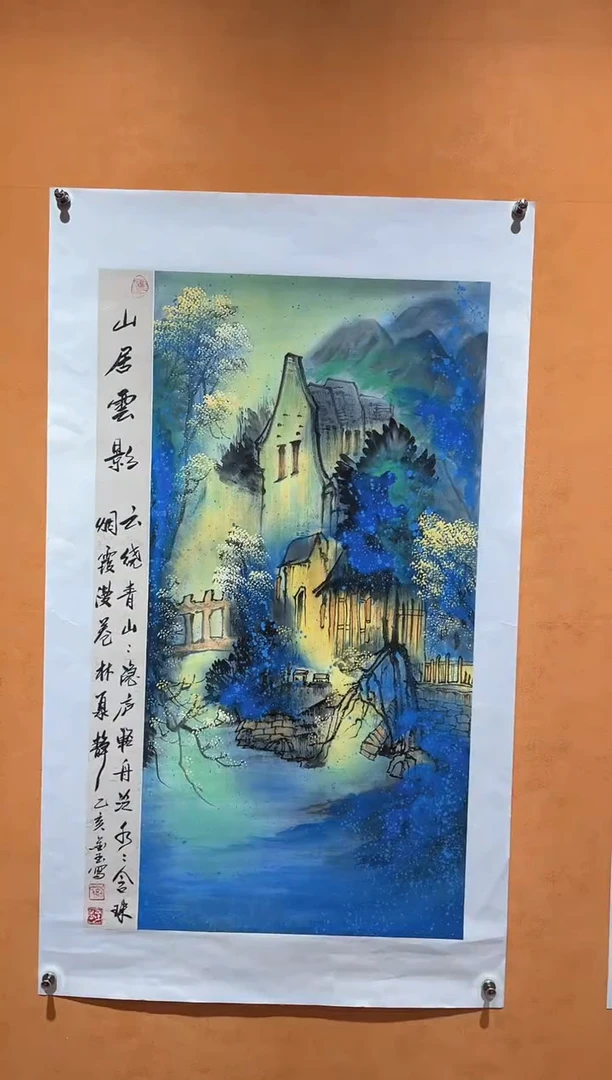 山居雲影
云绕青山〻隐庐轻舟泛水〻含珠
烟霞漫卷林泉静
乙亥 写